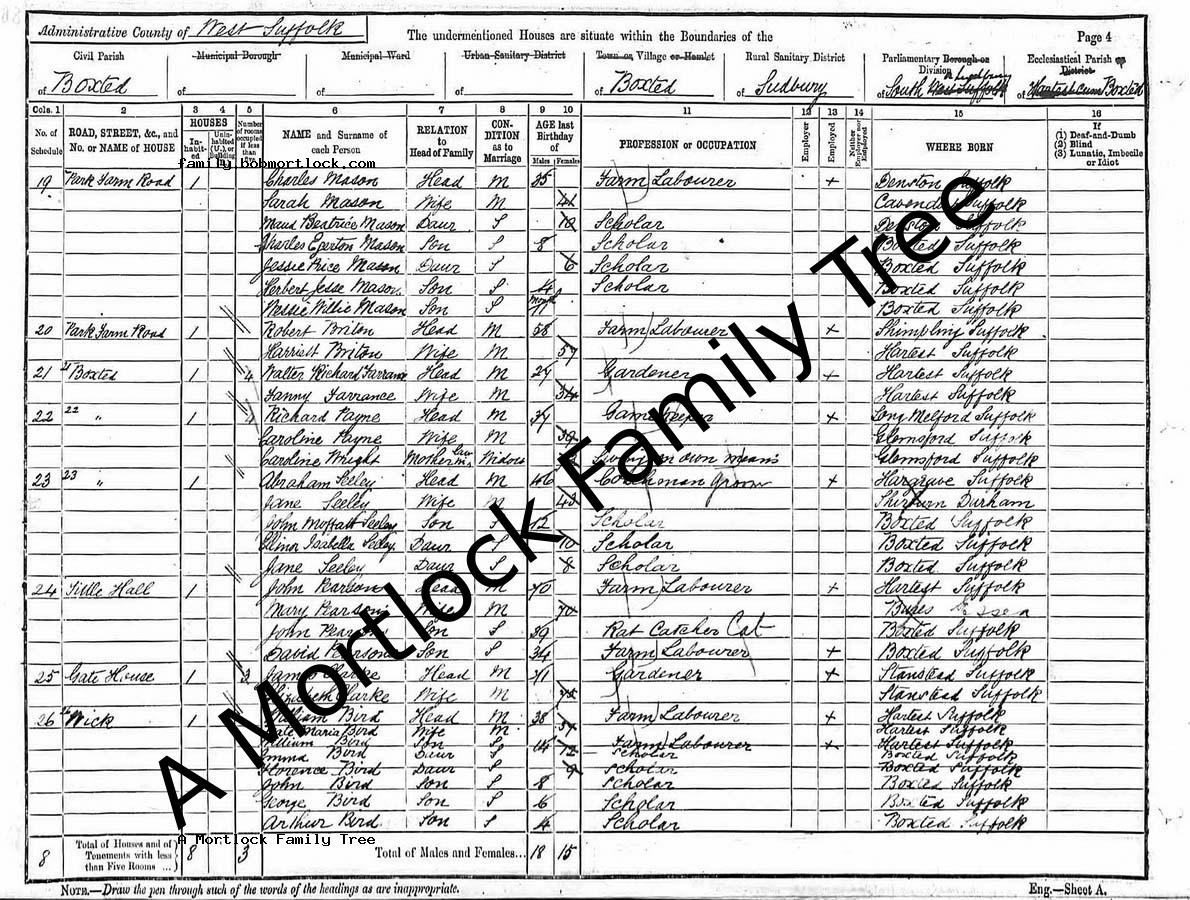 Administrative County of West Suffolk
The undermentioned Houses are situate within the Boundaries of the
Page 4
Civil Parish Municipal Borough Municipal Ward Urban Sanitary District Town or Village or Hamlet Rural Sanitary District Parliamentary Borough or Division Ecclesiastical Parish or District
of Boxted of of of Boxted of Sudbury of South West Suffolk of Hartest cum Boxted
Cols. 1 2 3 4 5 6 7 8 9 10 11 12 13 14 15 16
No. of Schedule ROAD, STREET, &c., and No. or NAME of HOUSE HOUSES Inhabited Uninhabited (U.), or Building Number of rooms occupied if less than five NAME and Surname of each Person RELATION to Head of Family CONDITION as to Marriage AGE last Birthday of Males Females PROFESSION or OCCUPATION Employer Employed Neither Employer nor Employed WHERE BORN If (1) Deaf-and-Dumb (2) Blind (3) Lunatic, Imbecile or Idiot
family.bobmortlock.com
19 Park Farm Road 1 Charles Mason Head M 35 Farm Labourer + Denston Suffolk
Sarah Mason Wife M 41 Cavendish Suffolk
Maud Beatrice Mason Daur S 10 Scholar Denston Suffolk
Charles Egerton Mason Son S 8 Scholar Boxted Suffolk
Jessie Price Mason Daur S 6 Scholar Boxted Suffolk
Herbert Jesse Mason Son S 4 Scholar Boxted Suffolk
Willie Mason Son S 11 months Boxted Suffolk
20 Park Farm Road 1 Robert Briton Head M 58 Farm Labourer + Shimpling Suffolk
Harriett Briton Wife M 57 Hartest Suffolk
21 Boxted 1 4 Walter Richard Farrance Head M 27 Gardener + Hartest Suffolk
Fanny Farrance Wife M 34 Hartest Suffolk
22 22 " 1 4 Richard Payne Head M 37 Gamekeeper + Long Melford Suffolk
Caroline Payne Wife M 39 Glemsford Suffolk
Caroline Wright Mother in Law Widow Living on own means Glemsford Suffolk
23 23 " 1 Abraham Seeley Head M 46 Coachman Groom + Hargrave Suffolk
Jane Seeley Wife M 43 Durham
John Moffatt Seeley Son S 12 Scholar Boxted Suffolk
Elinor Isabella Seeley Daur S 10 Scholar Boxted Suffolk
Jane Seeley Daur S 8 Scholar Boxted Suffolk
24 Tittle Hall 1 John Pearson Head M 70 Farm Labourer + Hartest Suffolk
Mary Pearson Wife M 70 Bures Essex
John Pearson Son S 39 Rat Catcher Boxted Suffolk
David Pearson Son S 34 Farm Labourer + Boxted Suffolk
25 Gate House 1 3 James Clarke Head M 71 Gardener + Stanstead Suffolk
Elizabeth Clarke Wife M Stanstead Suffolk
26 Wick 1 William Bird Head M 38 Farm Labourer + Hartest Suffolk
Maria Bird Wife M 37 Hartest Suffolk
William Bird Son S 14 Farm Labourer + Hartest Suffolk
Emma Bird Daur S 12 Scholar Boxted Suffolk
Florence Bird Daur S 9 Scholar Boxted Suffolk
John Bird Son S 8 Scholar Boxted Suffolk
George Bird Son S 6 Scholar Boxted Suffolk
Arthur Bird Son S 4 Scholar Boxted Suffolk
A Mortlock Family Tree
8 Total of Houses and of Tenements with less than Five Rooms ... 8 3 Total of Males and Females... 18 15
A Mortlock Family Tree
NOTE.—Draw the pen through such of the words of the headings as are inappropriate.
Eng.—Sheet A.